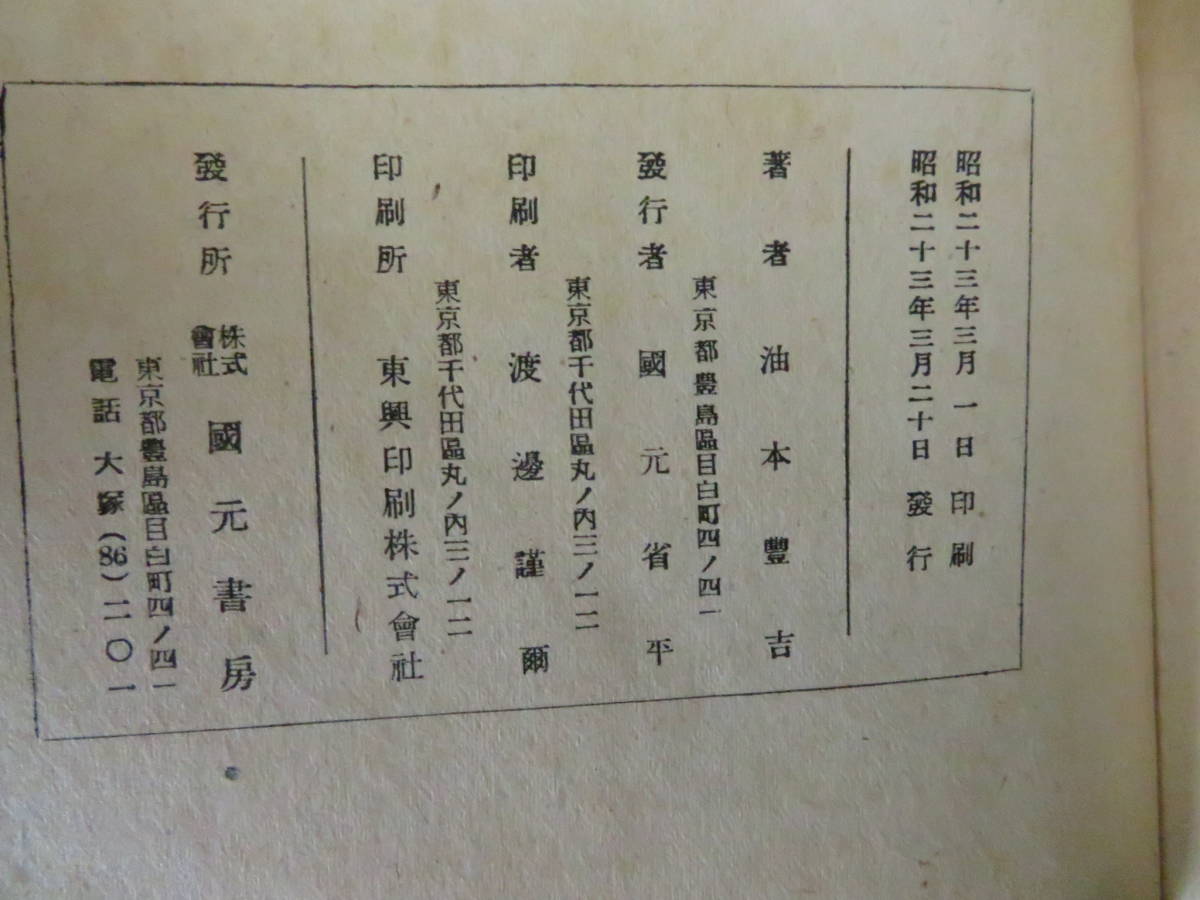 昭和二十三年三月一日印刷
昭和二十三年三月二十日發行
著者 油本豐吉
東京都豐島區目白町四ノ四一
發行者 國元省平
東京都千代田區丸ノ內三ノ一二
印刷者 渡邊謹爾
東京都千代田區丸ノ內三ノ一二
印刷所 東興印刷株式會社
發行所 株式會社 國元書房
東京都豐島區目白町四ノ四一
電話大塚(86)二〇一